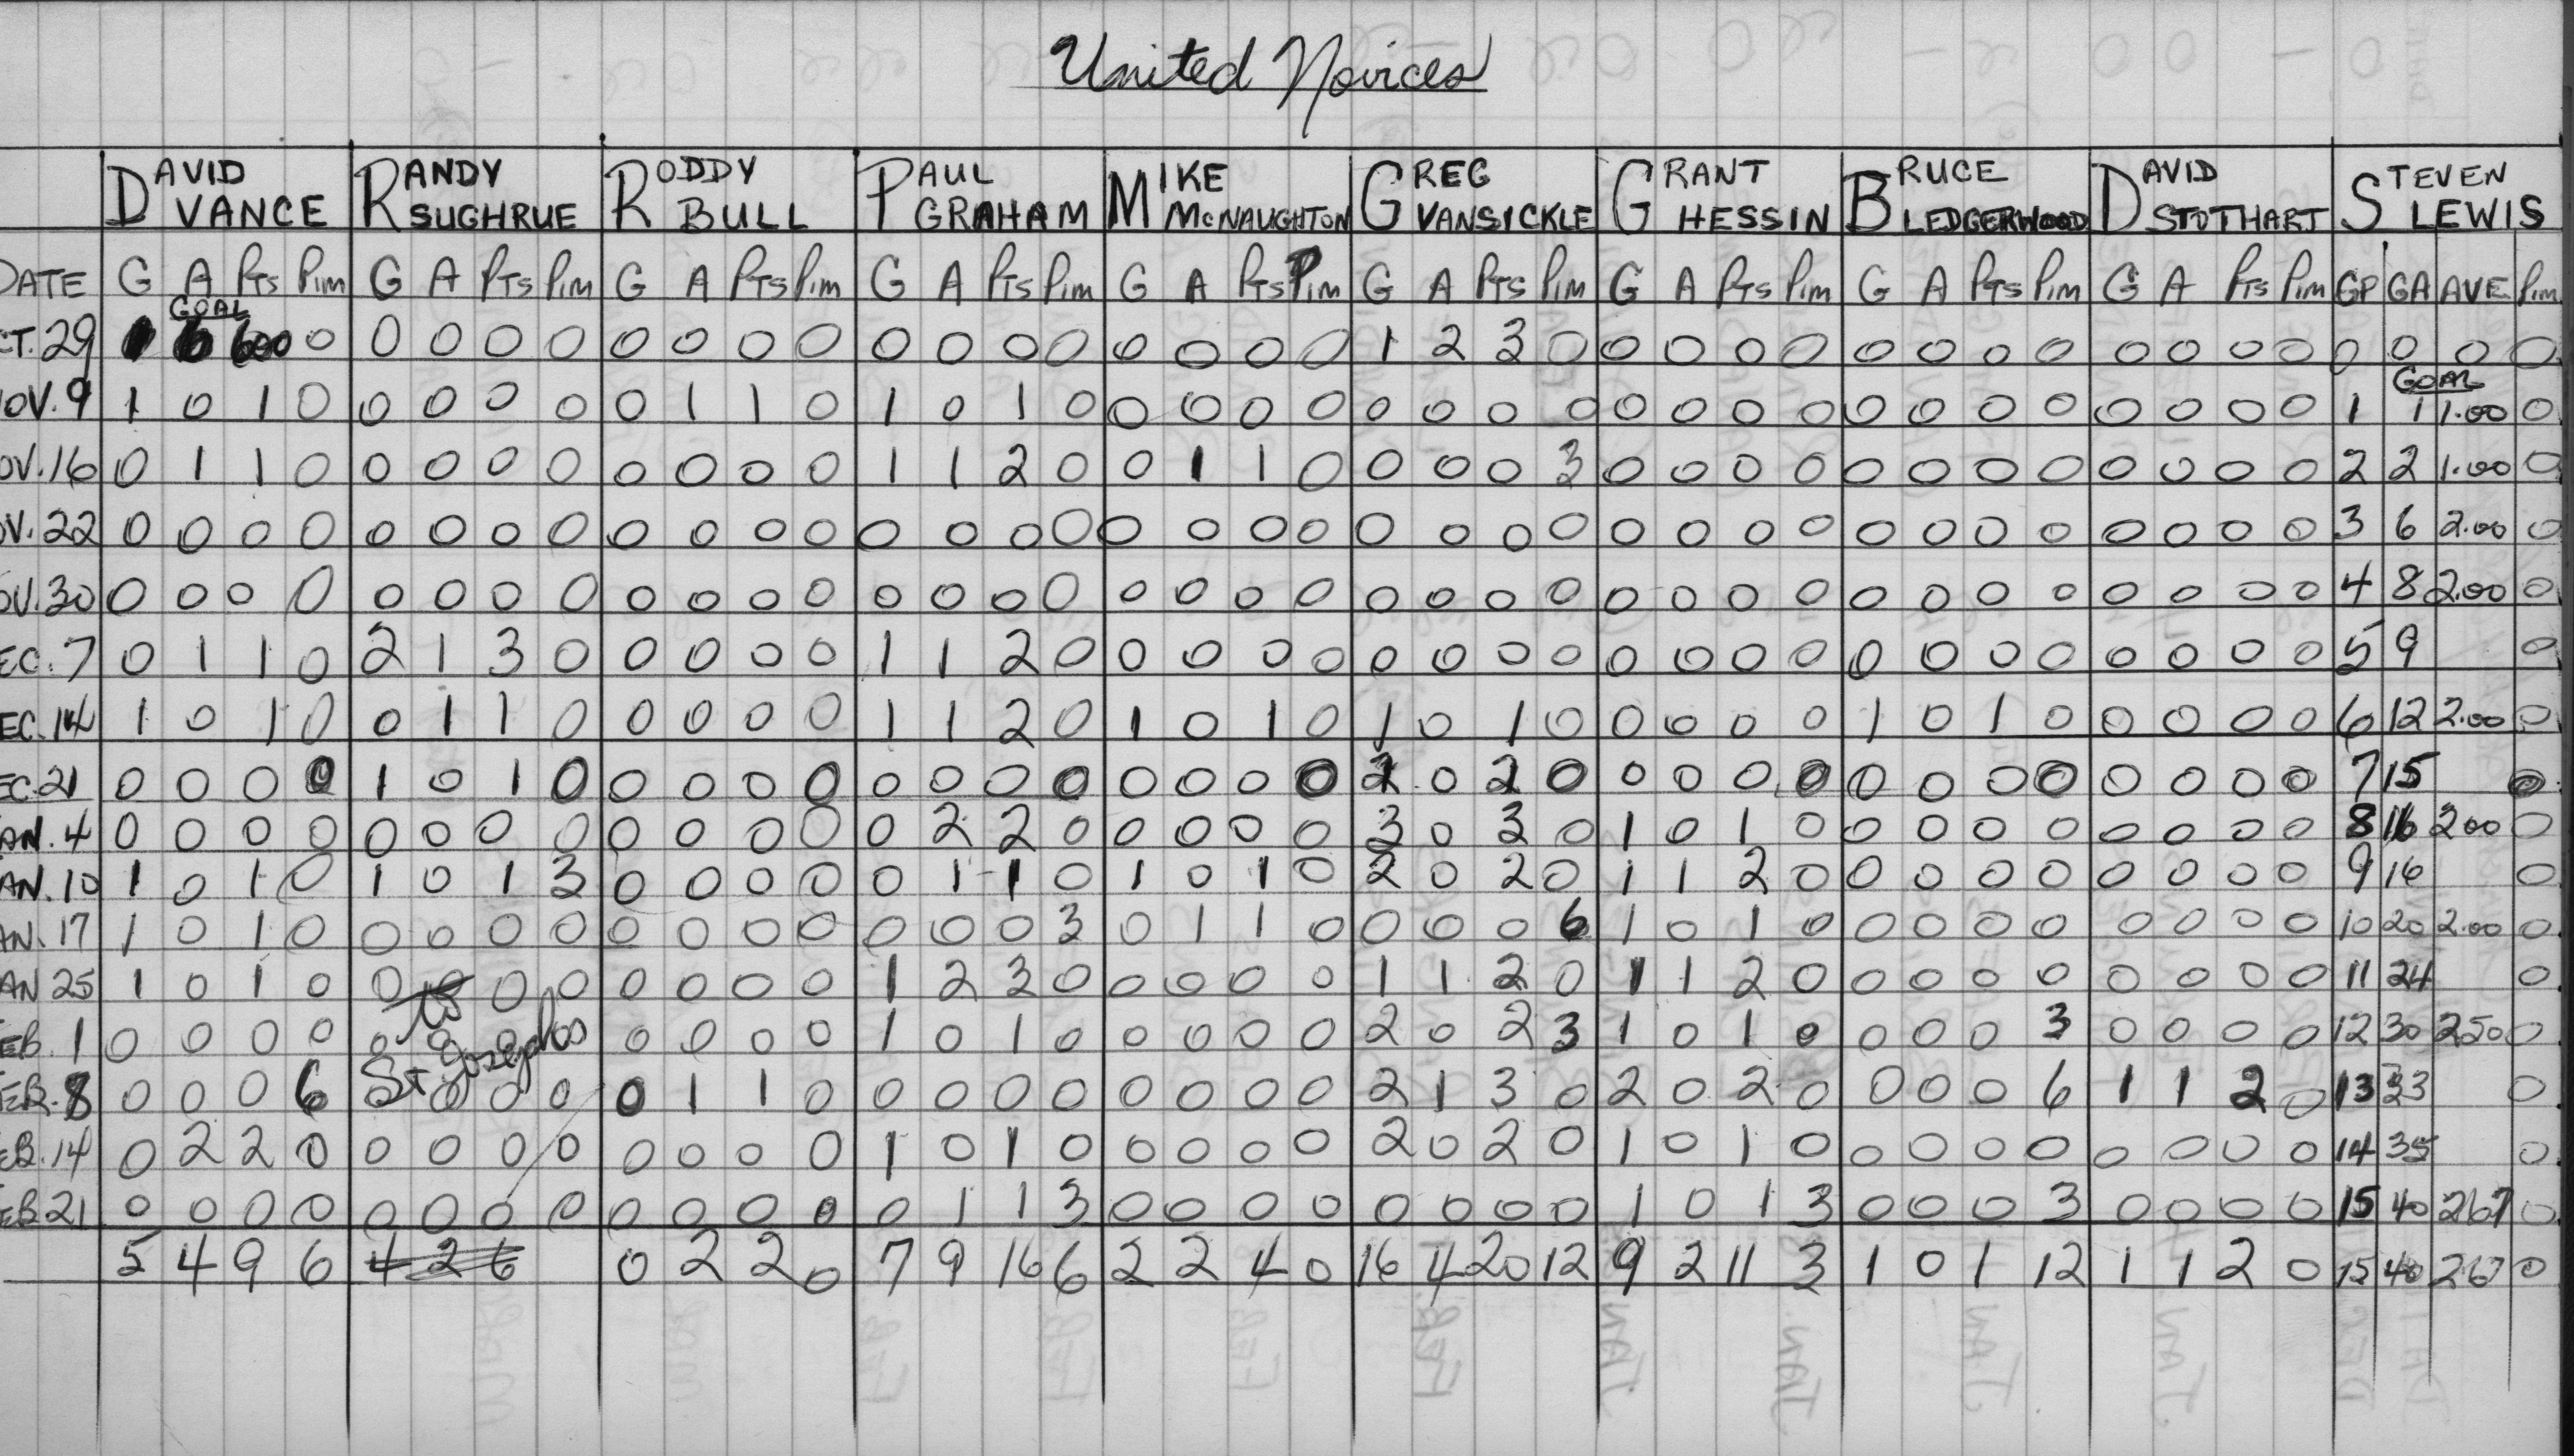 United Novices
DAVID VANCE RANDY SUGHRUE RODDY BULL PAUL GRAHAM MIKE McNAUGHTON GREG VANSICKLE GRANT HESSIN BRUCE LEDGERWOOD DAVID STOTHART STEVEN LEWIS
DATE G A PTS PIM G A PTS PIM G A PTS PIM G A PTS PIM G A PTS PIM G A PTS PIM G A PTS PIM G A PTS PIM G A PTS PIM GP GA AVE PIM
GOAL
CT. 29 1 6 600 0 0 0 0 0 0 0 0 0 0 0 0 0 0 0 0 0 1 2 3 0 0 0 0 0 0 0 0 0 0 0 0 0 0 0 0 0
GOAL
OV. 9 1 0 1 0 0 0 0 0 0 1 1 0 1 0 1 0 0 0 0 0 0 0 0 0 0 0 0 0 0 0 0 0 0 0 0 0 1 1 1.00 0
OV. 16 0 1 1 0 0 0 0 0 0 0 0 0 1 1 2 0 0 1 1 0 0 0 0 3 0 0 0 0 0 0 0 0 0 0 0 0 2 2 1.00 0
OV. 22 0 0 0 0 0 0 0 0 0 0 0 0 0 0 0 0 0 0 0 0 0 0 0 0 0 0 0 0 0 0 0 0 0 0 0 0 3 6 2.00 0
OV. 30 0 0 0 0 0 0 0 0 0 0 0 0 0 0 0 0 0 0 0 0 0 0 0 0 0 0 0 0 0 0 0 0 0 0 0 0 4 8 2.00 0
EC. 7 0 1 1 0 2 1 3 0 0 0 0 0 1 1 2 0 0 0 0 0 0 0 0 0 0 0 0 0 0 0 0 0 0 0 0 0 5 9 0
EC. 14 1 0 1 0 0 1 1 0 0 0 0 0 1 1 2 0 1 0 1 0 1 0 1 0 0 0 0 0 1 0 1 0 0 0 0 0 6 12 2.00 0
EC. 21 0 0 0 0 1 0 1 0 0 0 0 0 0 0 0 0 0 0 0 0 2 0 2 0 0 0 0 0 0 0 0 0 0 0 0 0 7 15 0
AN. 4 0 0 0 0 0 0 0 0 0 0 0 0 0 2 2 0 0 0 0 0 3 0 3 0 1 0 1 0 0 0 0 0 0 0 0 0 8 16 200 0
AN. 10 1 0 1 0 1 0 1 3 0 0 0 0 0 1 1 0 1 0 1 0 2 0 2 0 1 1 2 0 0 0 0 0 0 0 0 0 9 16 0
AN. 17 1 0 1 0 0 0 0 0 0 0 0 0 0 0 0 3 0 1 1 0 0 0 0 6 1 0 1 0 0 0 0 0 0 0 0 0 10 20 2.00 0
AN 25 1 0 1 0 0 0 0 0 0 0 0 0 1 2 3 0 0 0 0 0 1 1 2 0 1 1 2 0 0 0 0 0 0 0 0 0 11 24 0
to
EB. 1 0 0 0 0 0 0 0 0 0 0 0 0 1 0 1 0 0 0 0 0 2 0 2 3 1 0 1 0 0 0 0 3 0 0 0 0 12 30 250 0
St Josephs
EB. 8 0 0 0 6 0 0 0 0 1 1 0 0 0 0 0 0 0 0 0 2 1 3 0 2 0 2 0 0 0 0 6 1 1 2 0 13 33 0
EB. 14 0 2 2 0 0 0 0 0 0 0 0 0 1 0 1 0 0 0 0 0 2 0 2 0 1 0 1 0 0 0 0 0 0 0 0 0 14 35 0
EB 21 0 0 0 0 0 0 0 0 0 0 0 0 0 1 1 3 0 0 0 0 0 0 0 0 1 0 1 3 0 0 0 3 0 0 0 0 15 40 267 0
5 4 9 6 4 2 6 0 2 2 0 7 9 16 6 2 2 4 0 16 4 20 12 9 2 11 3 1 0 1 12 1 1 2 0 15 40 267 0